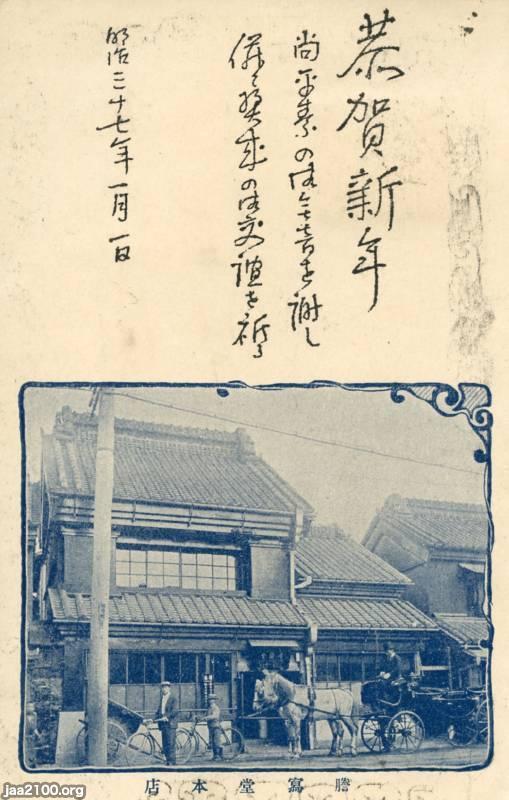 恭賀新年
尚平素の御無音を謝し
併て將来の御交誼を祈る
明治三十七年一月一日
謄寫堂本店
jaa2100.org